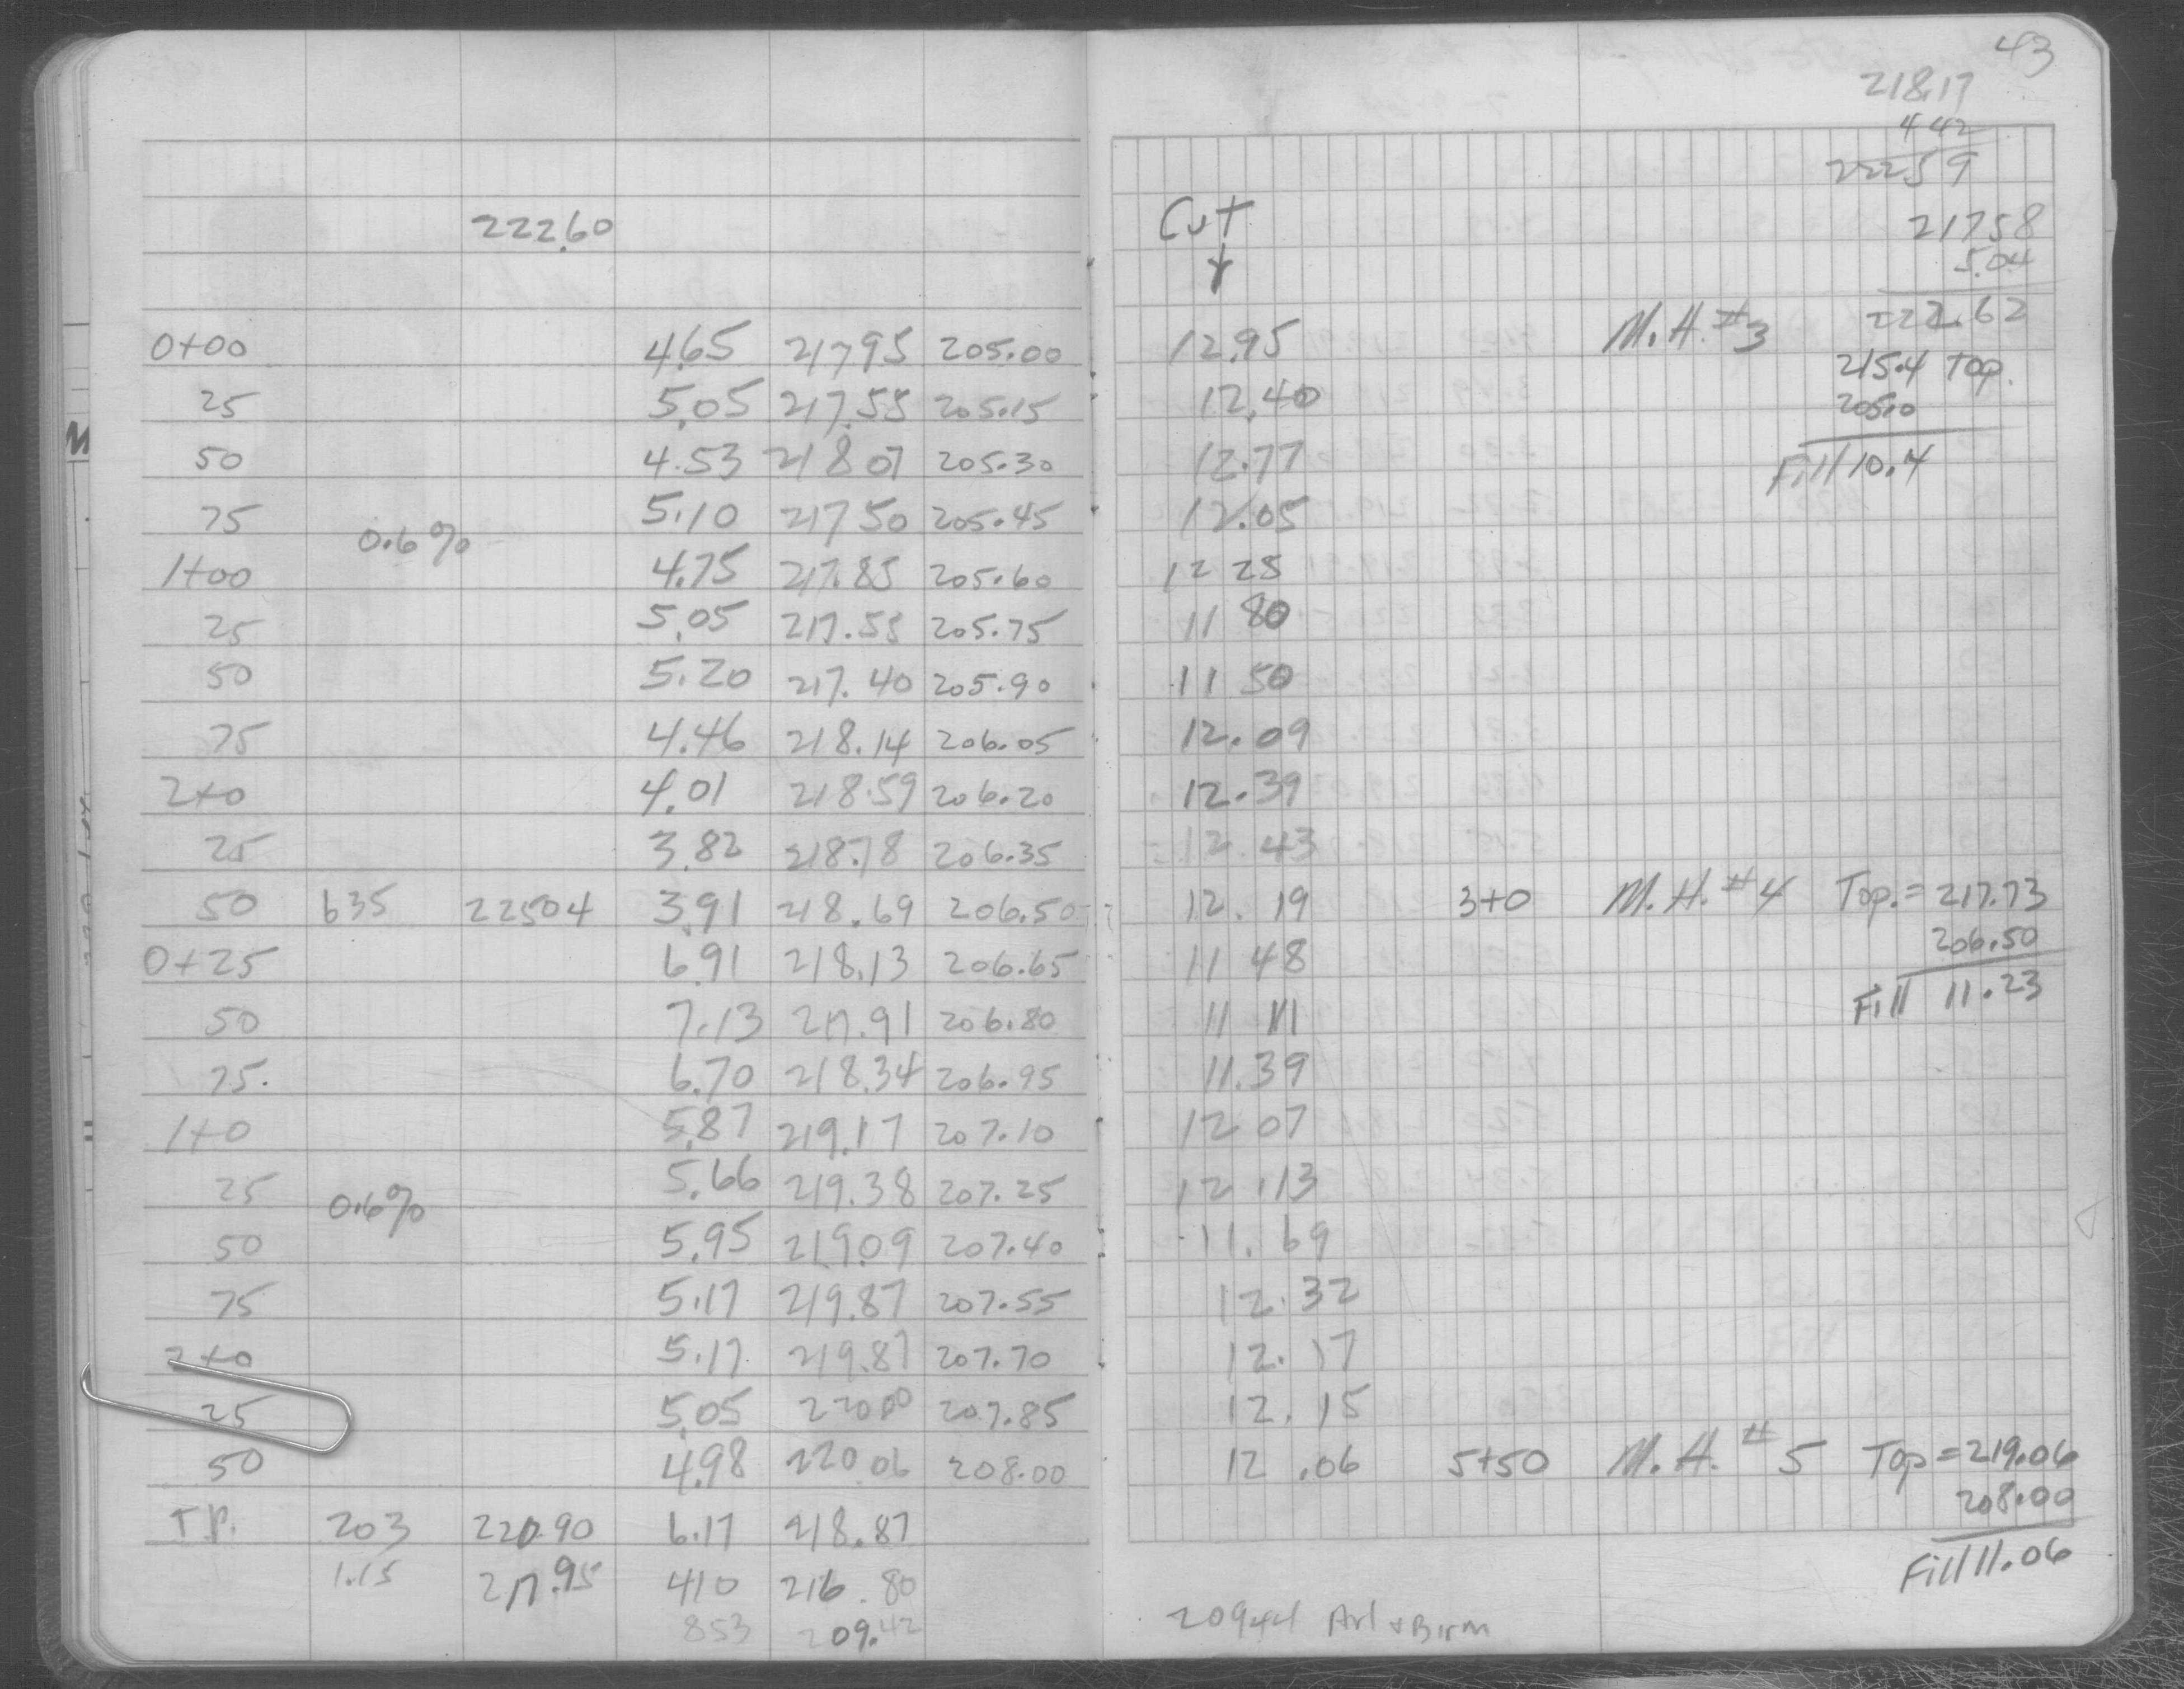 43
218.17
4 42
222 59
222.60 Cut 217 58
5.04
0+00 4.65 217 95 205.00 12.95 M.H. #3 222.62
215.4 Top.
25 5.05 217.55 205.15 12.40
205.0
50 4.53 218 07 205.30 12.77 Fill 10.4
75 5.10 217 50 205.45 12.05
0.6%
1+00 4.75 217.85 205.60 12 25
25 5.05 217.55 205.75 11 80
50 5.20 217.40 205.90 11 50
75 4.46 218.14 206.05 12.09
2+0 4.01 218.59 206.20 12.39
25 3.82 218.78 206.35 12.43
50 635 22504 3.91 218.69 206.50 12.19 3+0 M.H. #4 Top.=217.73
206.50
0+25 6.91 218.13 206.65 11 48
Fill 11.23
50 7.13 217.91 206.80 11 11
75. 6.70 218.34 206.95 11.39
1+0 5.87 219.17 207.10 12 07
25 5.66 219.38 207.25 12.13
0.6%
50 5.95 219.09 207.40 11.69
75 5.17 219.87 207.55 12.32
2+0 5.17 219.87 207.70 12.17
25 5.05 220 00 207.85 12.15
50 4.98 220 06 208.00 12.06 5+50 M.H. #5 Top=219.06
208.00
T.P. 203 220.90 6.17 218.87
Fill 11.06
1.15 217.95 410 216.80
853 209.42 20944 Arl + Birm